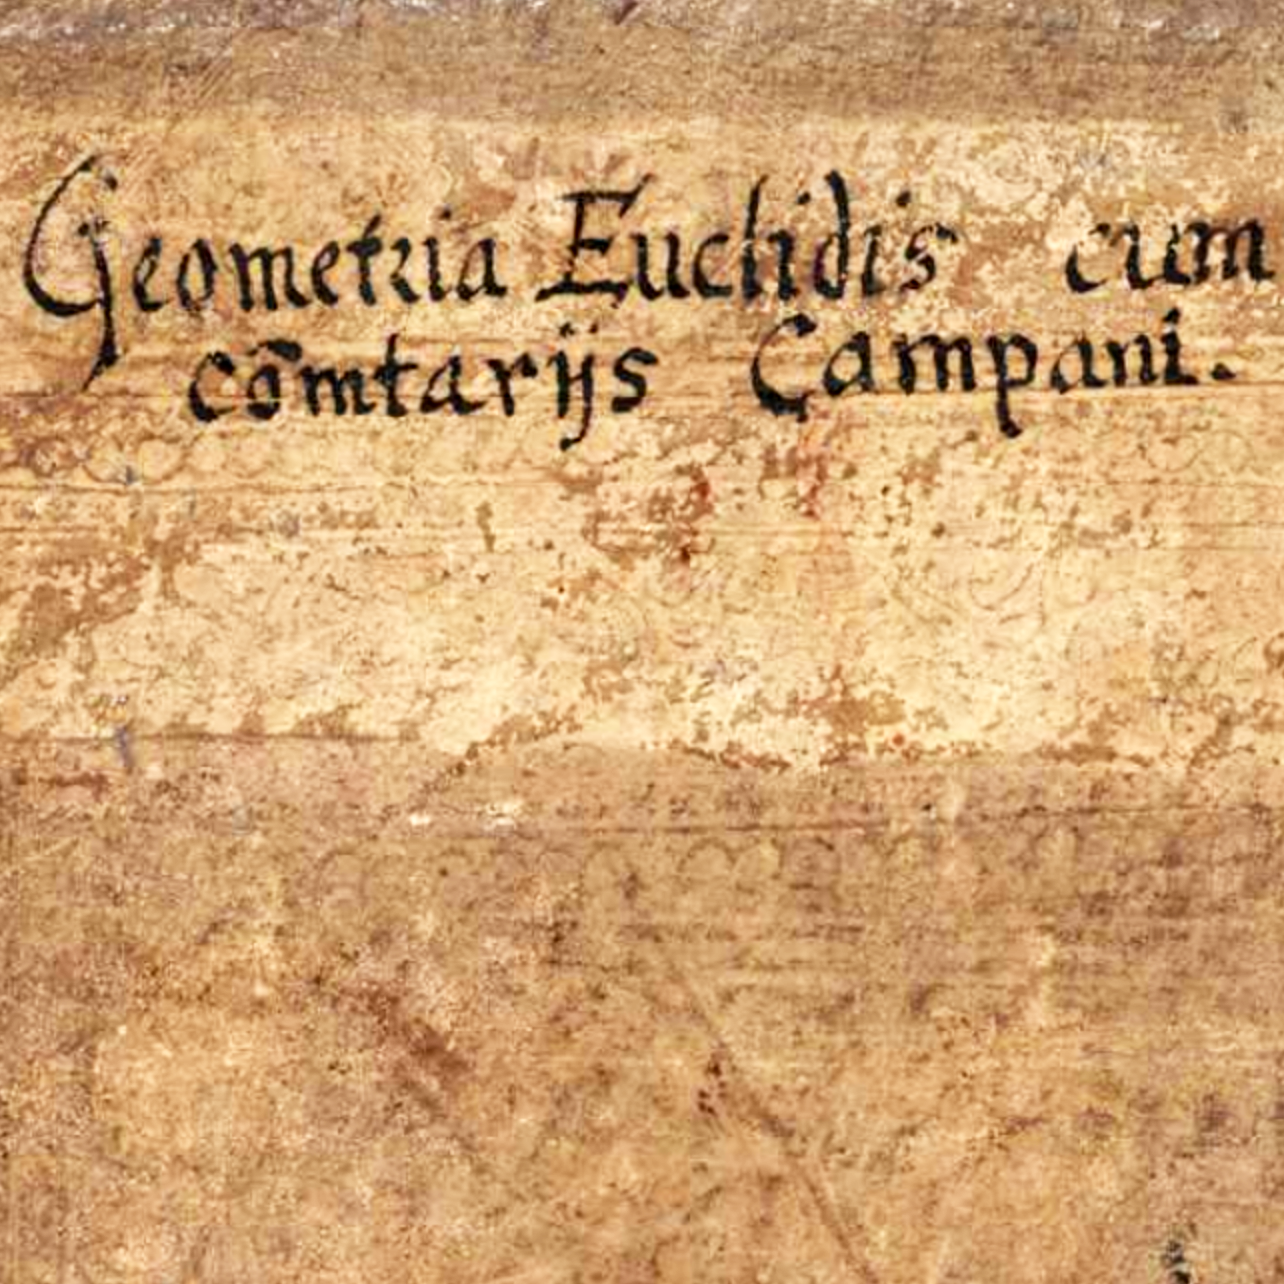 Geometria Euclidis cum
cōmtarijs Campani.